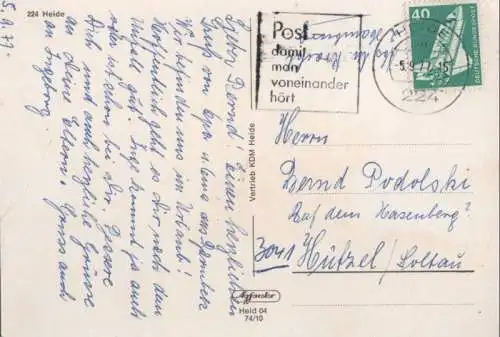 5.9.77.
224 Heide
Lieber Bernd! Einen herzlichen
Gruß von Opa u. Oma aus
Wir befinden uns im Urlaub!
Hoffentlich geht es Dir nach dem
gut. Inge kommt ja auch
oder ist schon bei Dir. Grüße
Dich und auch herzliche Grüße
an Deine Eltern. Gruss auch
an Ingeborg.
Vertrieb KDM Heide
Heid 04
74/10
Post
damit
man
voneinander
hört
-5.9.77-15
224
40
DEUTSCHE BUNDESPOST
Herrn
Bernd Podolski
Auf dem Hasenberg 2
3041 Hützel / Soltau